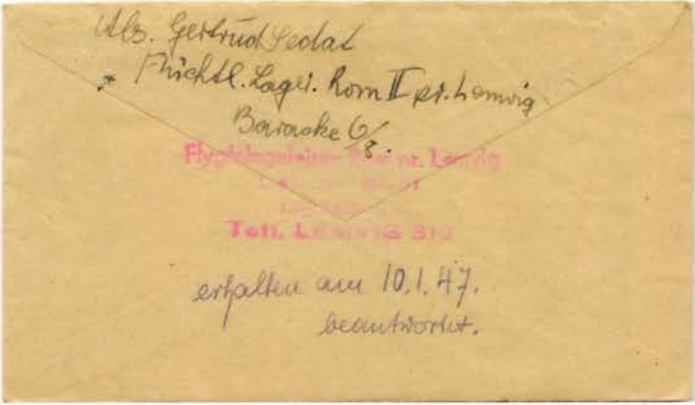 Abs. Gertrud Sedat
Flüchtl. Lager. Rom II pr. Lemvig
Baracke 6/8.
Flygtningelejren Rom pr. Lemvig
Telf. Lemvig
erhalten am 10.1.47.
beantwortet.